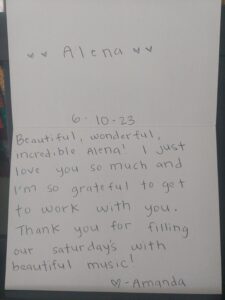 ♥ ♥ Alena ♥ ♥
6-10-23
Beautiful, wonderful,
incredible Alena! I just
love you so much and
I'm so grateful to get
to work with you.
Thank you for filling
our saturday's with
beautiful music!
♡-Amanda